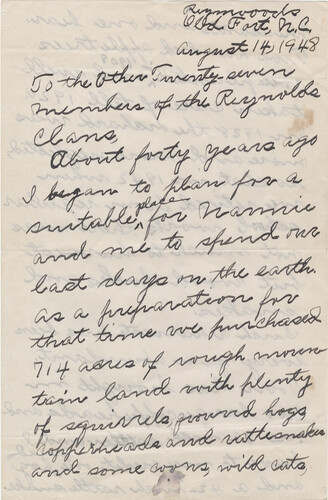 Reynwoods
Old Fort, N.C.
August 14, 1948
To the Other Twenty-seven
members of the Reynolds
Clans,
About forty years ago
I began to plan for a
suitable place for Nannie
and me to spend our
last days on the earth.
as a preparation for
that time we purchased
714 acres of rough moun
tain land with plenty
of squirrels, ground hogs,
copperheads and rattlesnakes
and some coons, wild cats,